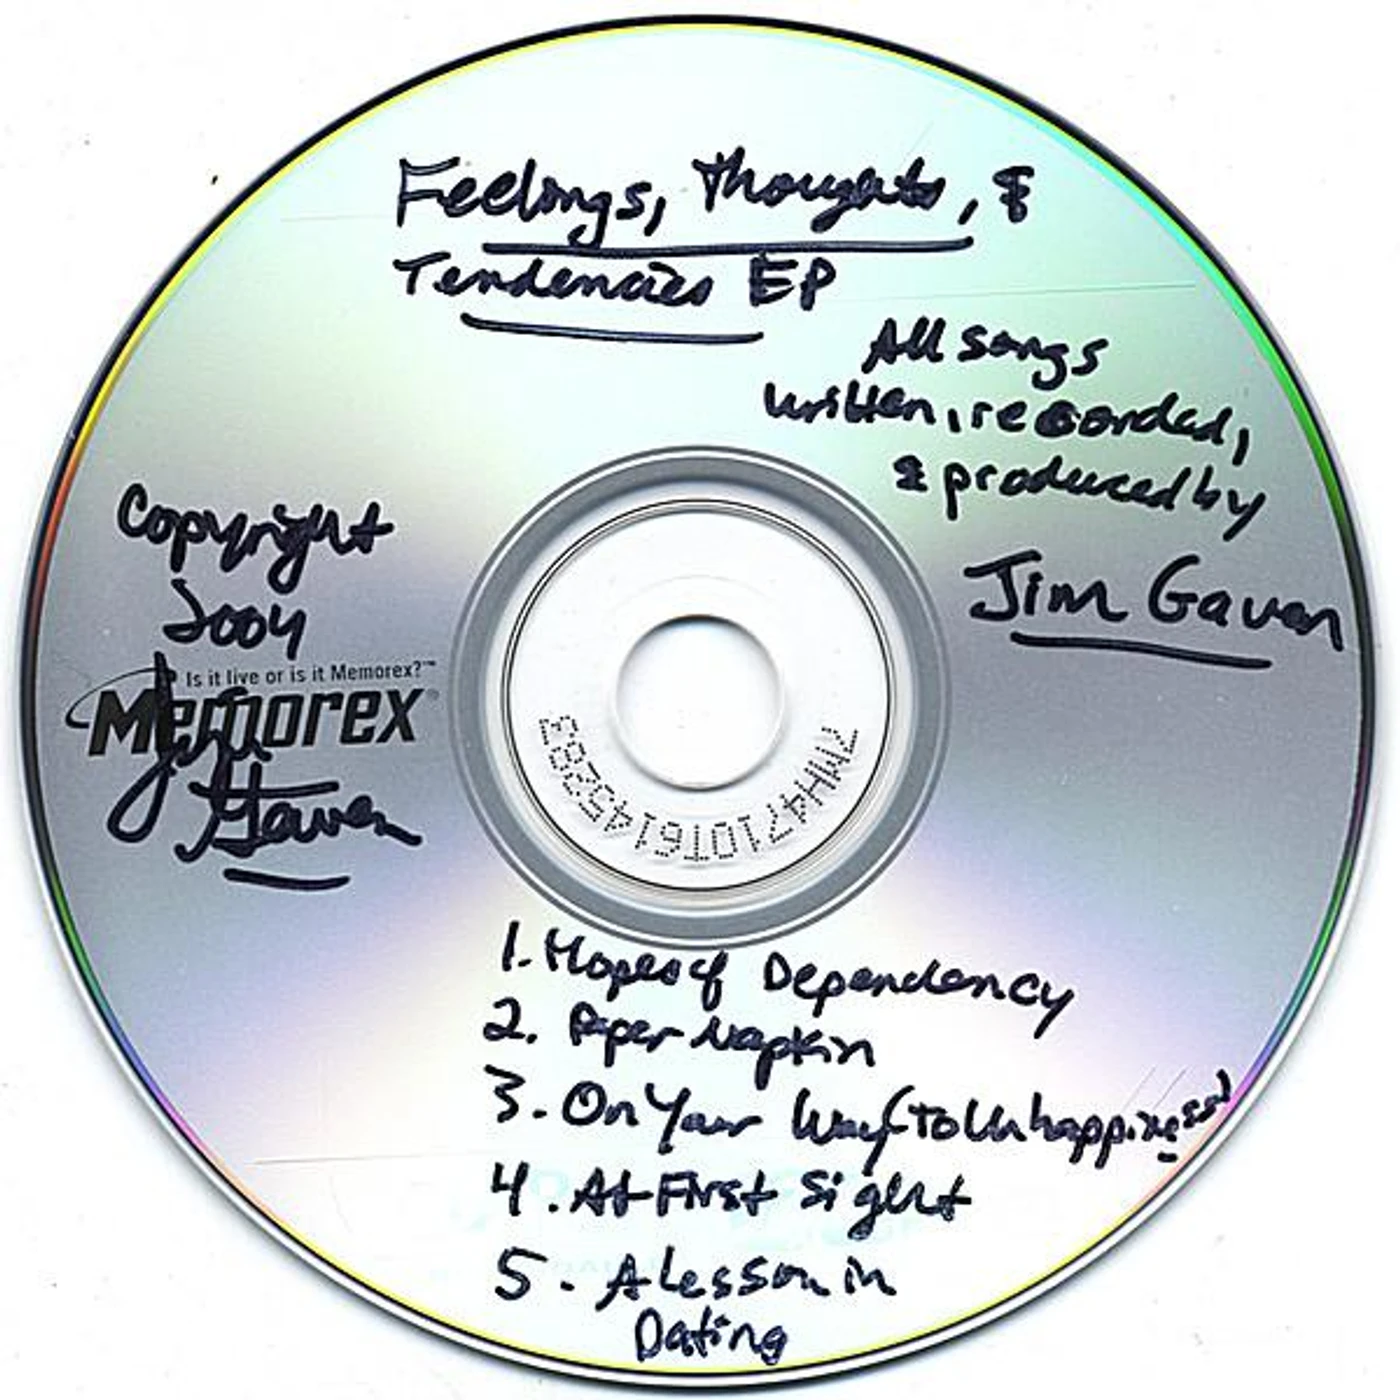 Feelings, Thoughts, &
Tendencies EP
All songs
written, recorded,
& produced by
Jim Gaven
Copyright
2004
Is it live or is it Memorex?™
Memorex®
Jim
Gaven
7MWH4710T61452283
1. Hopes of Dependency
2. Paper Napkin
3. On Your Way (To Unhappiness)
4. At First Sight
5. A Lesson in
Dating